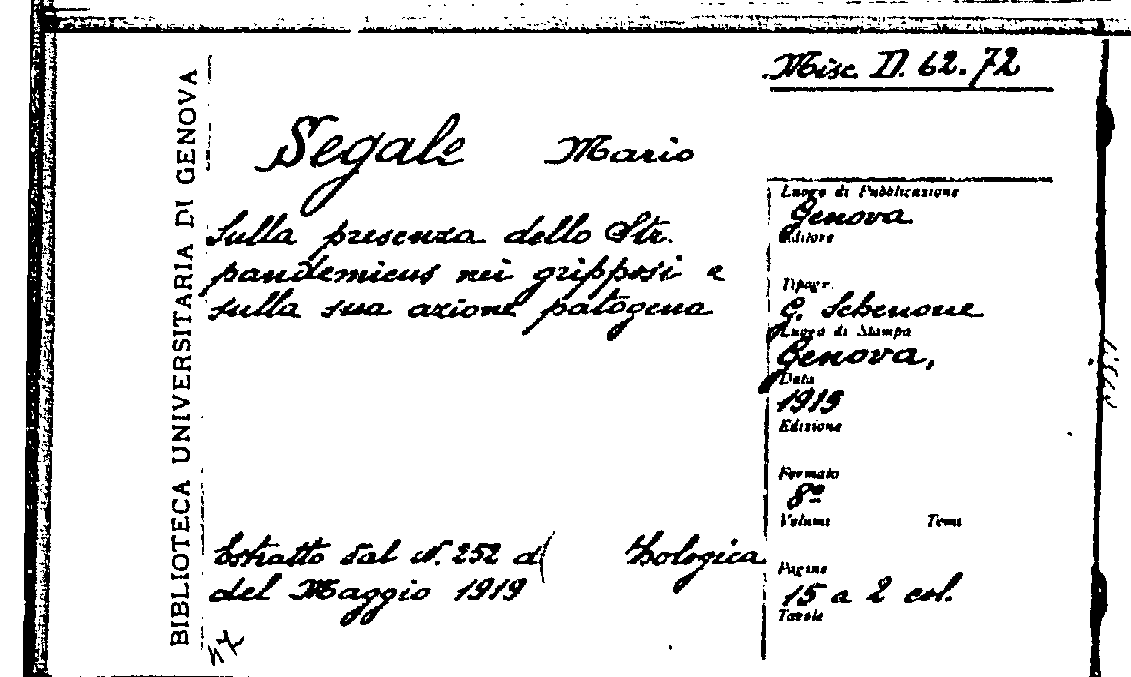 Misc. D. 62. 72
BIBLIOTECA UNIVERSITARIA DI GENOVA
Segale Mario
Sulla presenza dello Str.
pandemicus nei gripposi e
sulla sua azione patogena
Estratto dal N. 252 d
del Maggio 1919
Luogo di Pubblicazione
Genova
Editore
Tipogr.
G. Schenone
Luogo di Stampa
Genova,
Data
1919
Edizione
Formato
8º
Volumi Tomi
Pagine
15 a 2 col.
Tavole